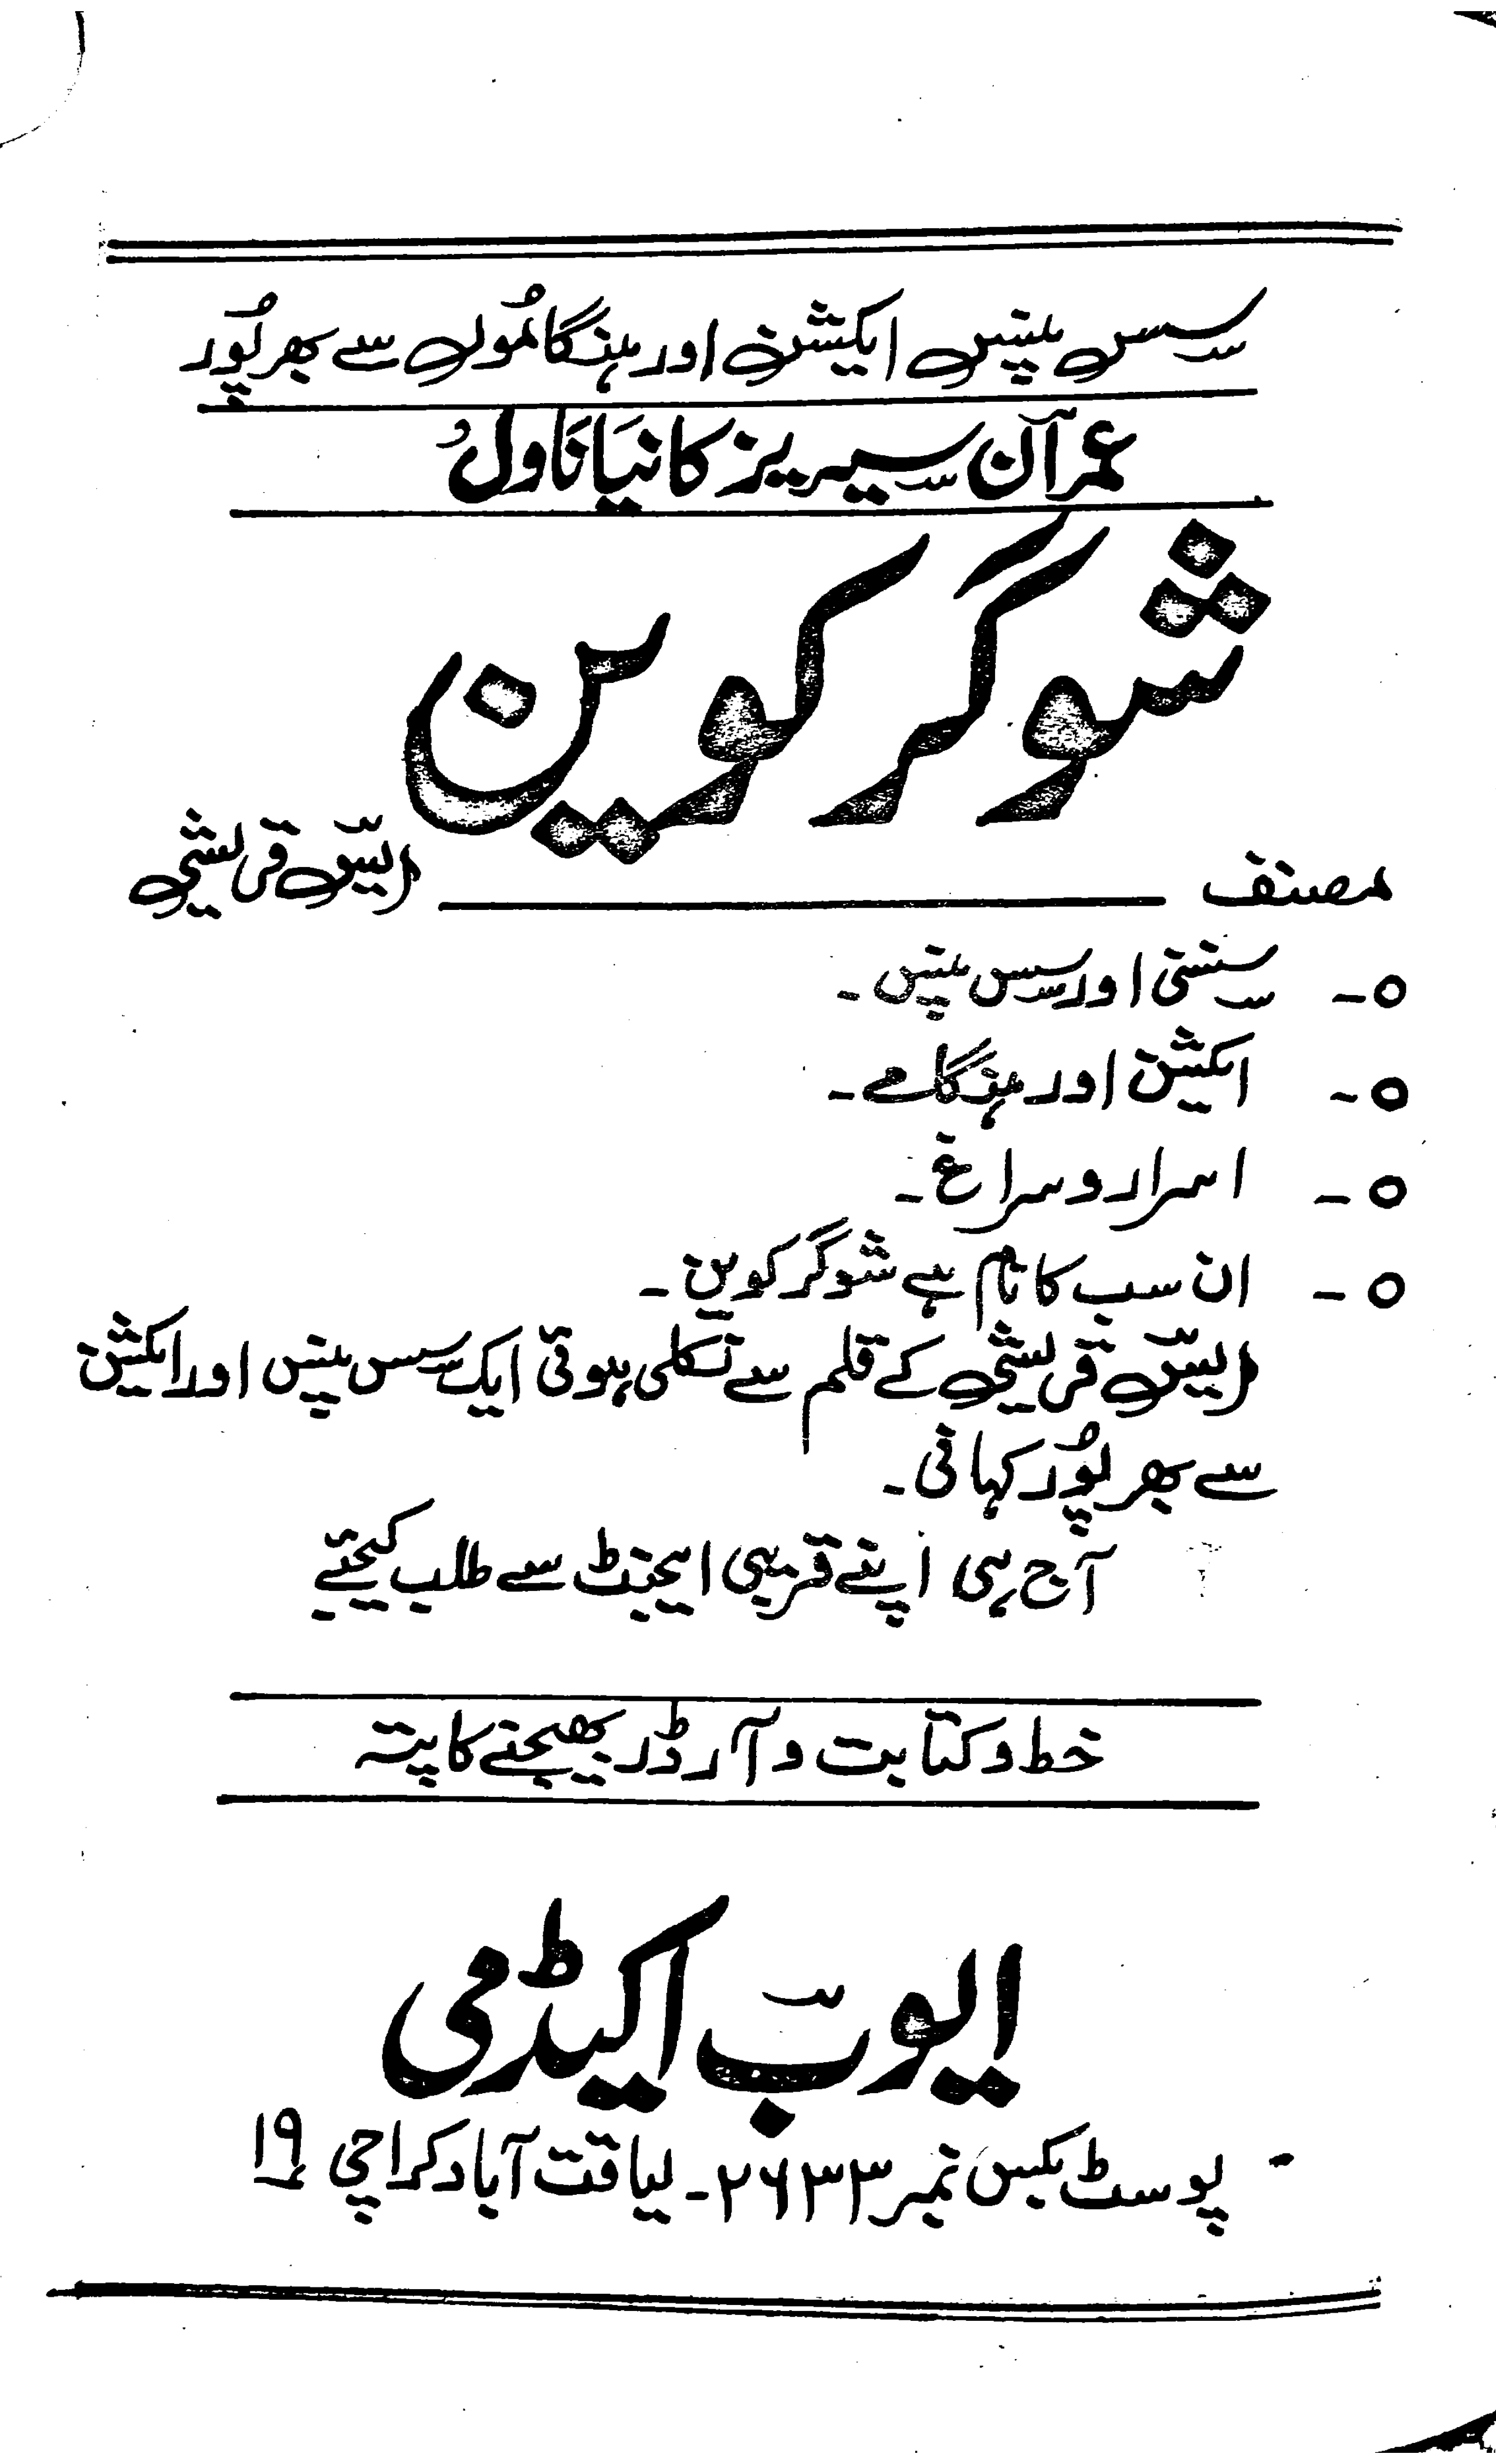 سسپنس ایکشن اور ہنگاموں سے بھرپُور
عمران سیریز کا نیا ناول
شوگر کوین
مصنف ــــــــ قریشی
○ ـ سنسنی اور سسپنس ـ
○ ـ ایکشن اور ہنگامے ـ
○ ـ اسرار و سراغ ـ
○ ـ ان سب کا نام ہے شوگر کوین ـ
قریشی کے قلم سے نکلی ہوئی ایک سسپنس اور ایکشن
سے بھرپُور کہانی ـ
آج ہی اپنے قریبی ایجنٹ سے طلب کیجئے
خط و کتابت و آرڈر بھیجنے کا پتہ
ایوب اکیڈمی
پوسٹ بکس نمبر ۲۶۳۳ ـ لیاقت آباد کراچی ۱۹